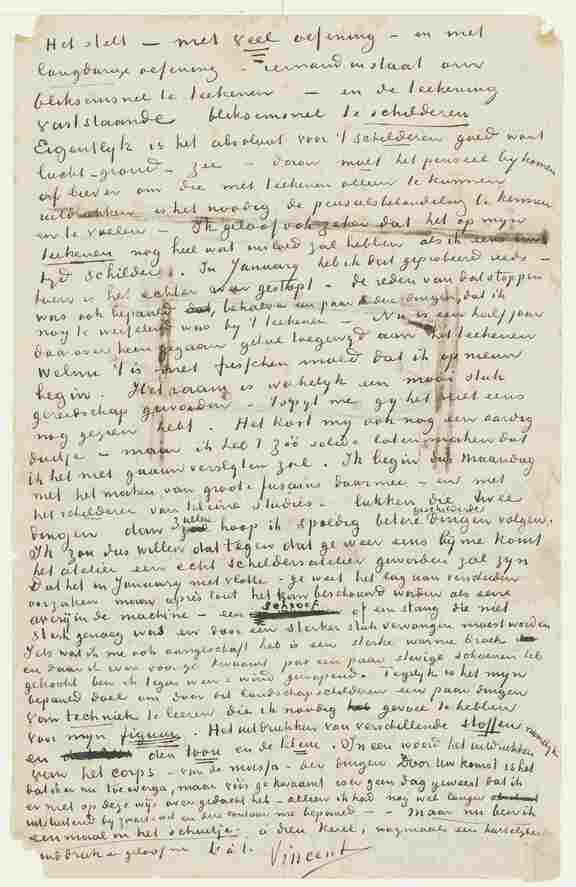 Het stelt – met veel oefening – en met
langdurige oefening – iemand in staat om
bliksemsnel te teekenen – en de teekening
vaststaande bliksemsnel te schilderen
Eigentlijk is het absoluut voor 't schilderen goed want
lucht – grond – zee – daar moet het penseel bij komen
of liever om die met teekenen alleen te kunnen
uitdrukken is het noodig de penseelbehandeling te kennen
en te voelen – Ik geloof ook zeker dat het op mijn
teekenen nog heel wat invloed zal hebben als ik eens een
tijd schilder. In January heb ik dat geprobeerd reeds –
toen is het echter gestopt – de reden van dat stoppen
was ook bepaald, behalve een paar andere dingen, dat ik
nog te weifelend was bij 't teekenen – Nu is een half jaar
daar over heen gegaan geheel toegewijd aan het teekenen
Welnu 't is met frischen moed dat ik op nieuw
begin. Het raam is wakelijk een mooi stuk
gereedschap geworden – 't spijt me gij het niet eens
nog gezien hebt. Het kost mij ook nog een aardig
duitje – maar ik heb 't zóó solide laten maken dat
ik het niet gaauw verslijten zal. Ik begin dus Maandag
met het maken van groote fusains daarmee – en met
het schilderen van kleine studies – lukken die twee
dingen dan zullen hoop ik spoedig betere geschilderde dingen volgen.
Ik zou dus willen dat tegen dat ge weer eens bij me komt
het atelier een echt schildersatelier geworden zal zijn
Dat het in January niet vlotte – ge weet het lag aan verscheiden
oorzaken maar après tout het kan beschouwd worden als eene
averij in de machine – een schroef of een stang die niet
sterk genoeg was en door een sterker stuk vervangen moest worden
Iets wat ik me ook aangeschaft heb is een sterke warme broek
en daar ik even voor ge kwaamt juist een paar stevige schoenen heb
gekocht ben ik tegen weer & wind gewapend. Tegelijk is het mijn
bepaald doel om door dit landschapschilderen een paar dingen
van techniek te leeren die ik noodig gevoel te hebben
voor mijn figuur. Het uitdrukken van verschillende stoffen namelijk
en den toon en de kleur. In een woord het uitdrukken
van het corps – van de massa – der dingen Door Uw komst is het
dat ik er nu toe overga, maar vóór ge kwaamt is er geen dag geweest dat ik
er niet op deze wijs over gedacht heb – alleen ik had nog wat langer
uitsluitend bij zwart & wit en den contour me bepaald – – Maar nu ben ik
eenmaal in het schuitje. à dieu kerel, nogmaals een hartelijken
handdruk en geloof me t. à t. Vincent